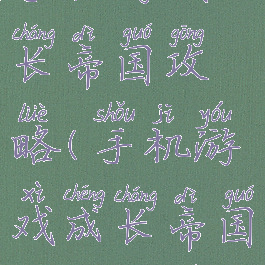 cháng dì guó gōng
长帝国攻
lüè shǒu jī yóu
略(手机游
xì chéng cháng dì guó
戏成长帝国